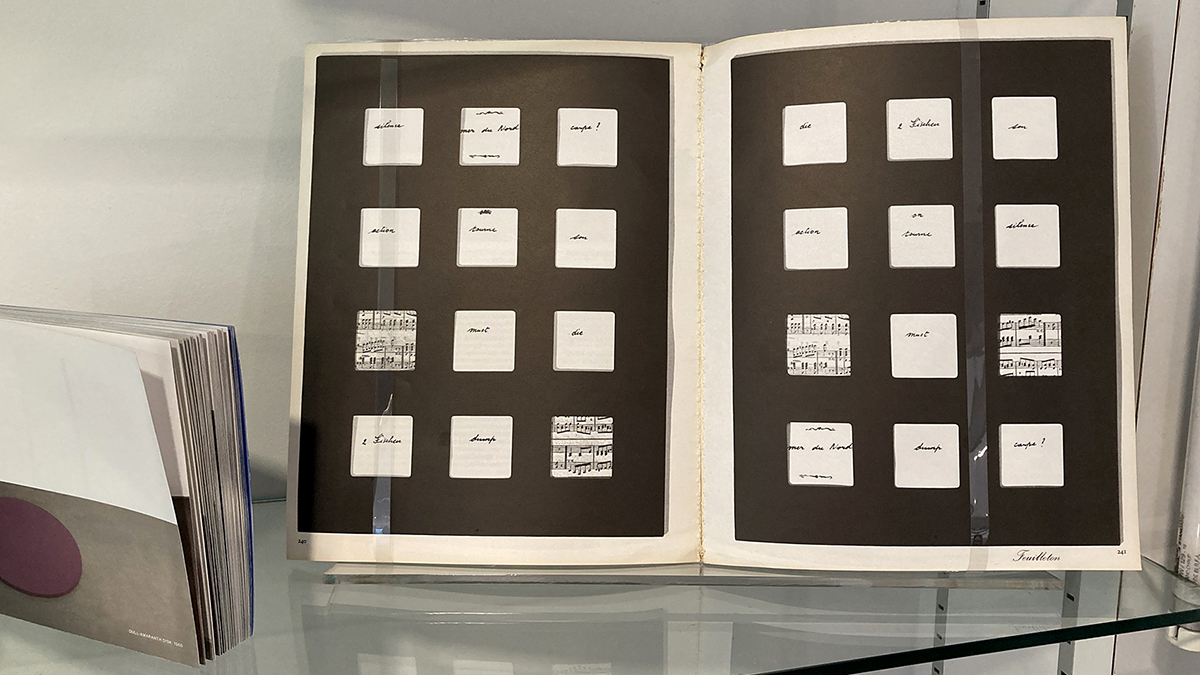 silence
mer du Nord
carpe ?
action
tourne
son
must
die
2 Fischen
bump
240
die
2 Fischen
son
action
on
tourne
silence
must
mer du Nord
bump
carpe ?
Feuilleton
241
DULL AMARANTH DISK 1966